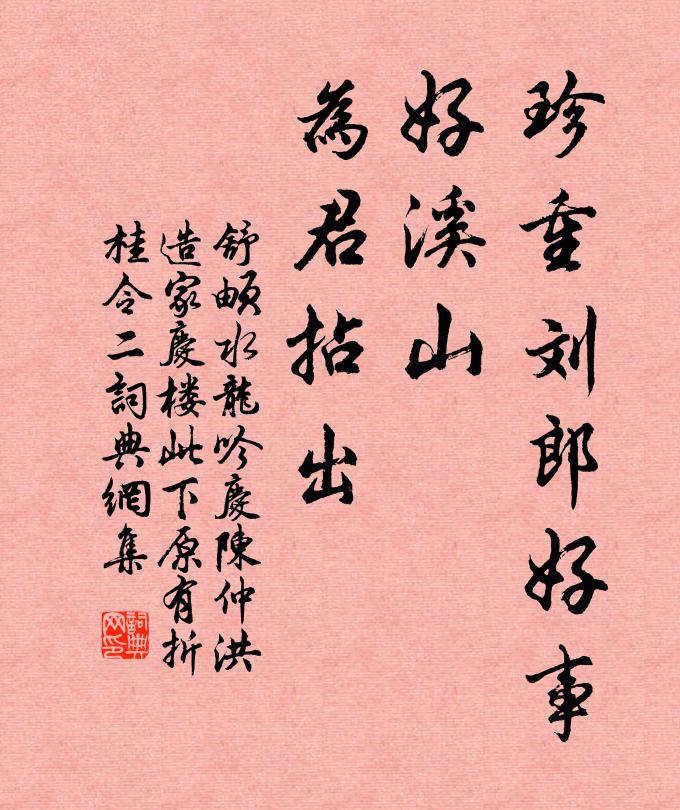 珍重刘郎好事
好溪山
為君拈出
舒頔水龍吟慶陳仲洪
造家慶楼此下原有折
桂令二詞典網集
詞典网印